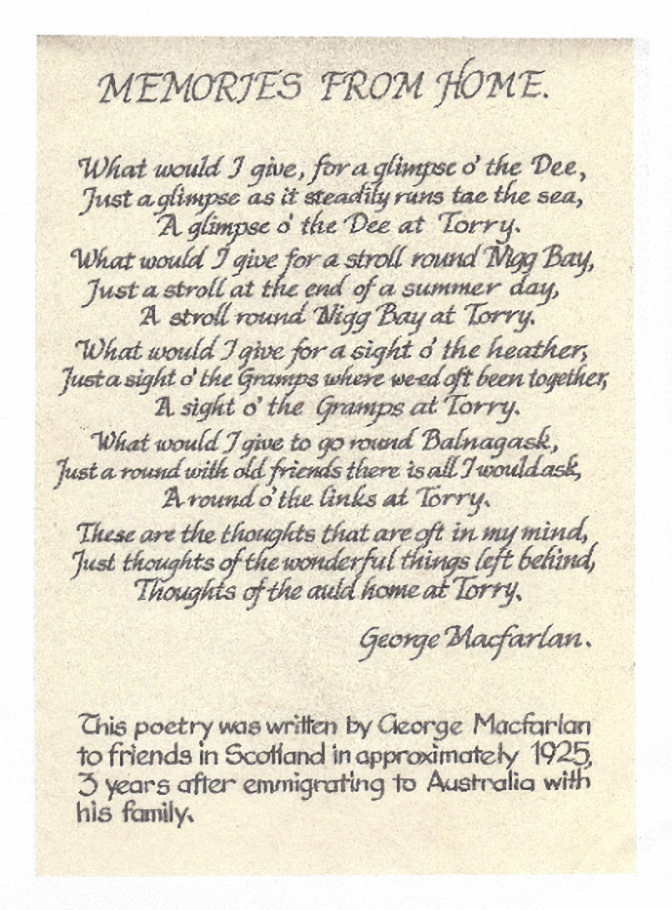 MEMORIES FROM HOME.
What would I give, for a glimpse o' the Dee,
Just a glimpse as it steadily runs tae the sea,
A glimpse o' the Dee at Torry.
What would I give for a stroll round Nigg Bay,
Just a stroll at the end of a summer day,
A stroll round Nigg Bay at Torry.
What would I give for a sight o' the heather,
Just a sight o' the Gramps where we-ed oft been together,
A sight o' the Gramps at Torry.
What would I give to go round Balnagask,
Just a round with old friends there is all I would ask,
A round o' the links at Torry.
These are the thoughts that are oft in my mind,
Just thoughts of the wonderful things left behind,
Thoughts of the auld home at Torry.
George Macfarlan.
This poetry was written by George Macfarlan
to friends in Scotland in approximately 1925,
3 years after emmigrating to Australia with
his family.